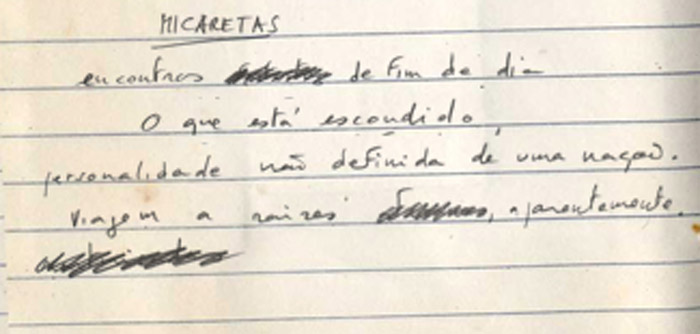 MICARETAS
encontros de fim de dia
O que está escondido,
personalidade não definida de uma nação.
Viagem a raizes , aparentemente.